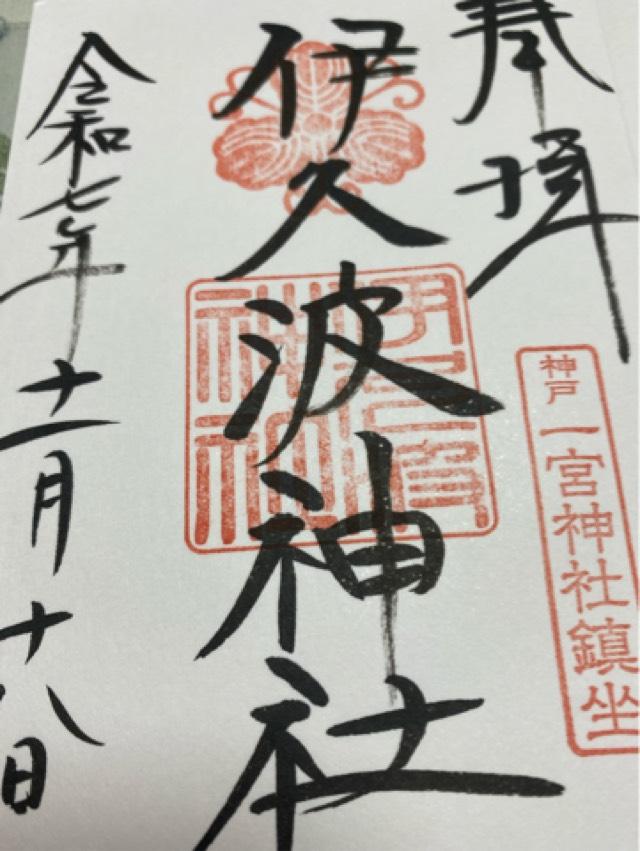 奉拝
神戸
一宮神社鎮坐
伊久波神社
令和七年十一月十八日